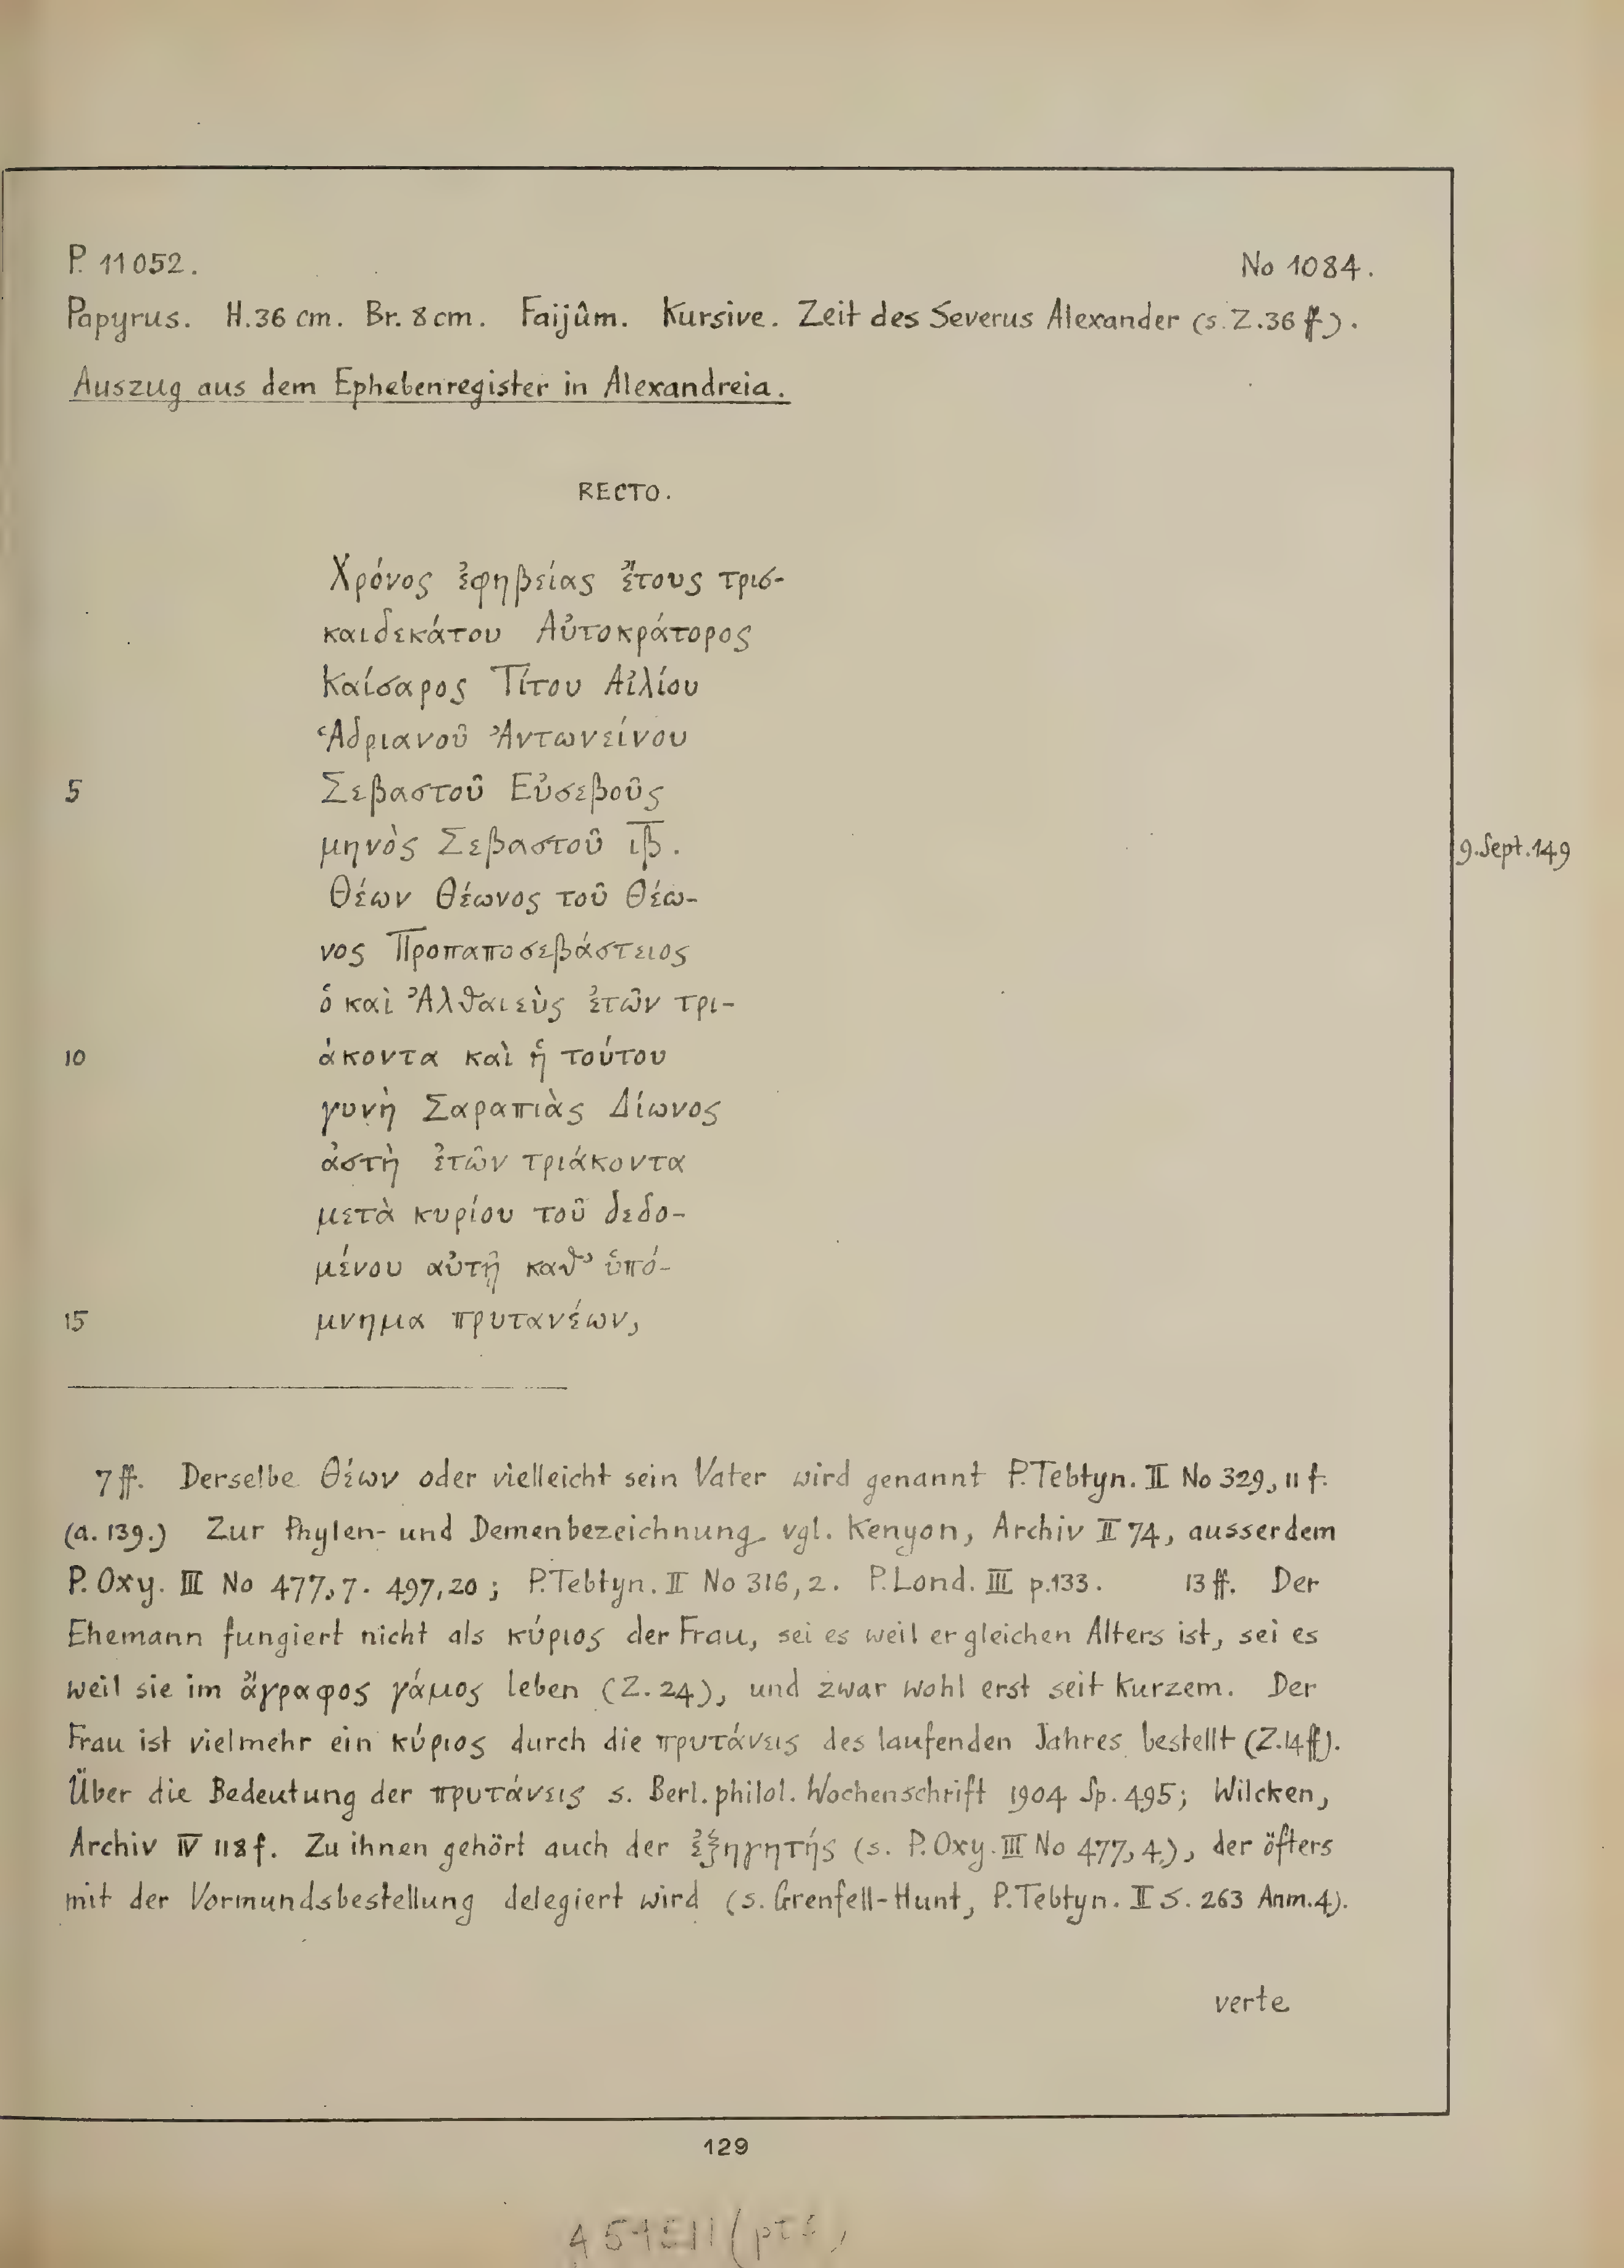 P. 11052. No 1084.
Papyrus. H. 36 cm. Br. 8 cm. Faijûm. Kursive. Zeit des Severus Alexander (s. Z. 36 ff).
Auszug aus dem Ephebenregister in Alexandreia.
RECTO.
Χρόνος ἐφηβείας ἔτους τρισ-
καιδεκάτου Αὐτοκράτορος
Καίσαρος Τίτου Αἰλίου
Ἁδριανοῦ Ἀντωνείνου
5 Σεβαστοῦ Εὐσεβοῦς
μηνὸς Σεβαστοῦ ιβ̅. 9. Sept. 149
Θέων Θέωνος τοῦ Θέω-
νος Προπαποσεβάστειος
ὁ καὶ Ἀλθαιεὺς ἐτῶν τρι-
10 άκοντα καὶ ἡ τούτου
γυνὴ Σαραπιὰς Δίωνος
ἀστὴ ἐτῶν τριάκοντα
μετὰ κυρίου τοῦ δεδο-
μένου αὐτῇ καθ’ ὑπό-
15 μνημα πρυτανέων,
7 ff. Derselbe Θέων oder vielleicht sein Vater wird genannt P. Tebtyn. II No 329, 11 f.
(a. 139.) Zur Phylen- und Demenbezeichnung vgl. Kenyon, Archiv II 74, ausserdem
P. Oxy. III No 477, 7. 497, 20; P. Tebtyn. II No 316, 2. P. Lond. III p. 133. 13 ff. Der
Ehemann fungiert nicht als κύριος der Frau, sei es weil er gleichen Alters ist, sei es
weil sie im ἄγραφος γάμος leben (Z. 24), und zwar wohl erst seit kurzem. Der
Frau ist vielmehr ein κύριος durch die πρυτάνεις des laufenden Jahres bestellt (Z. 14 ff).
Über die Bedeutung der πρυτάνεις s. Berl. philol. Wochenschrift 1904 Sp. 495; Wilcken,
Archiv IV 118 f. Zu ihnen gehört auch der ἐξηγητής (s. P. Oxy. III No 477, 4.), der öfters
mit der Vormundsbestellung delegiert wird (s. Grenfell-Hunt, P. Tebtyn. II S. 263 Anm. 4).
verte
129